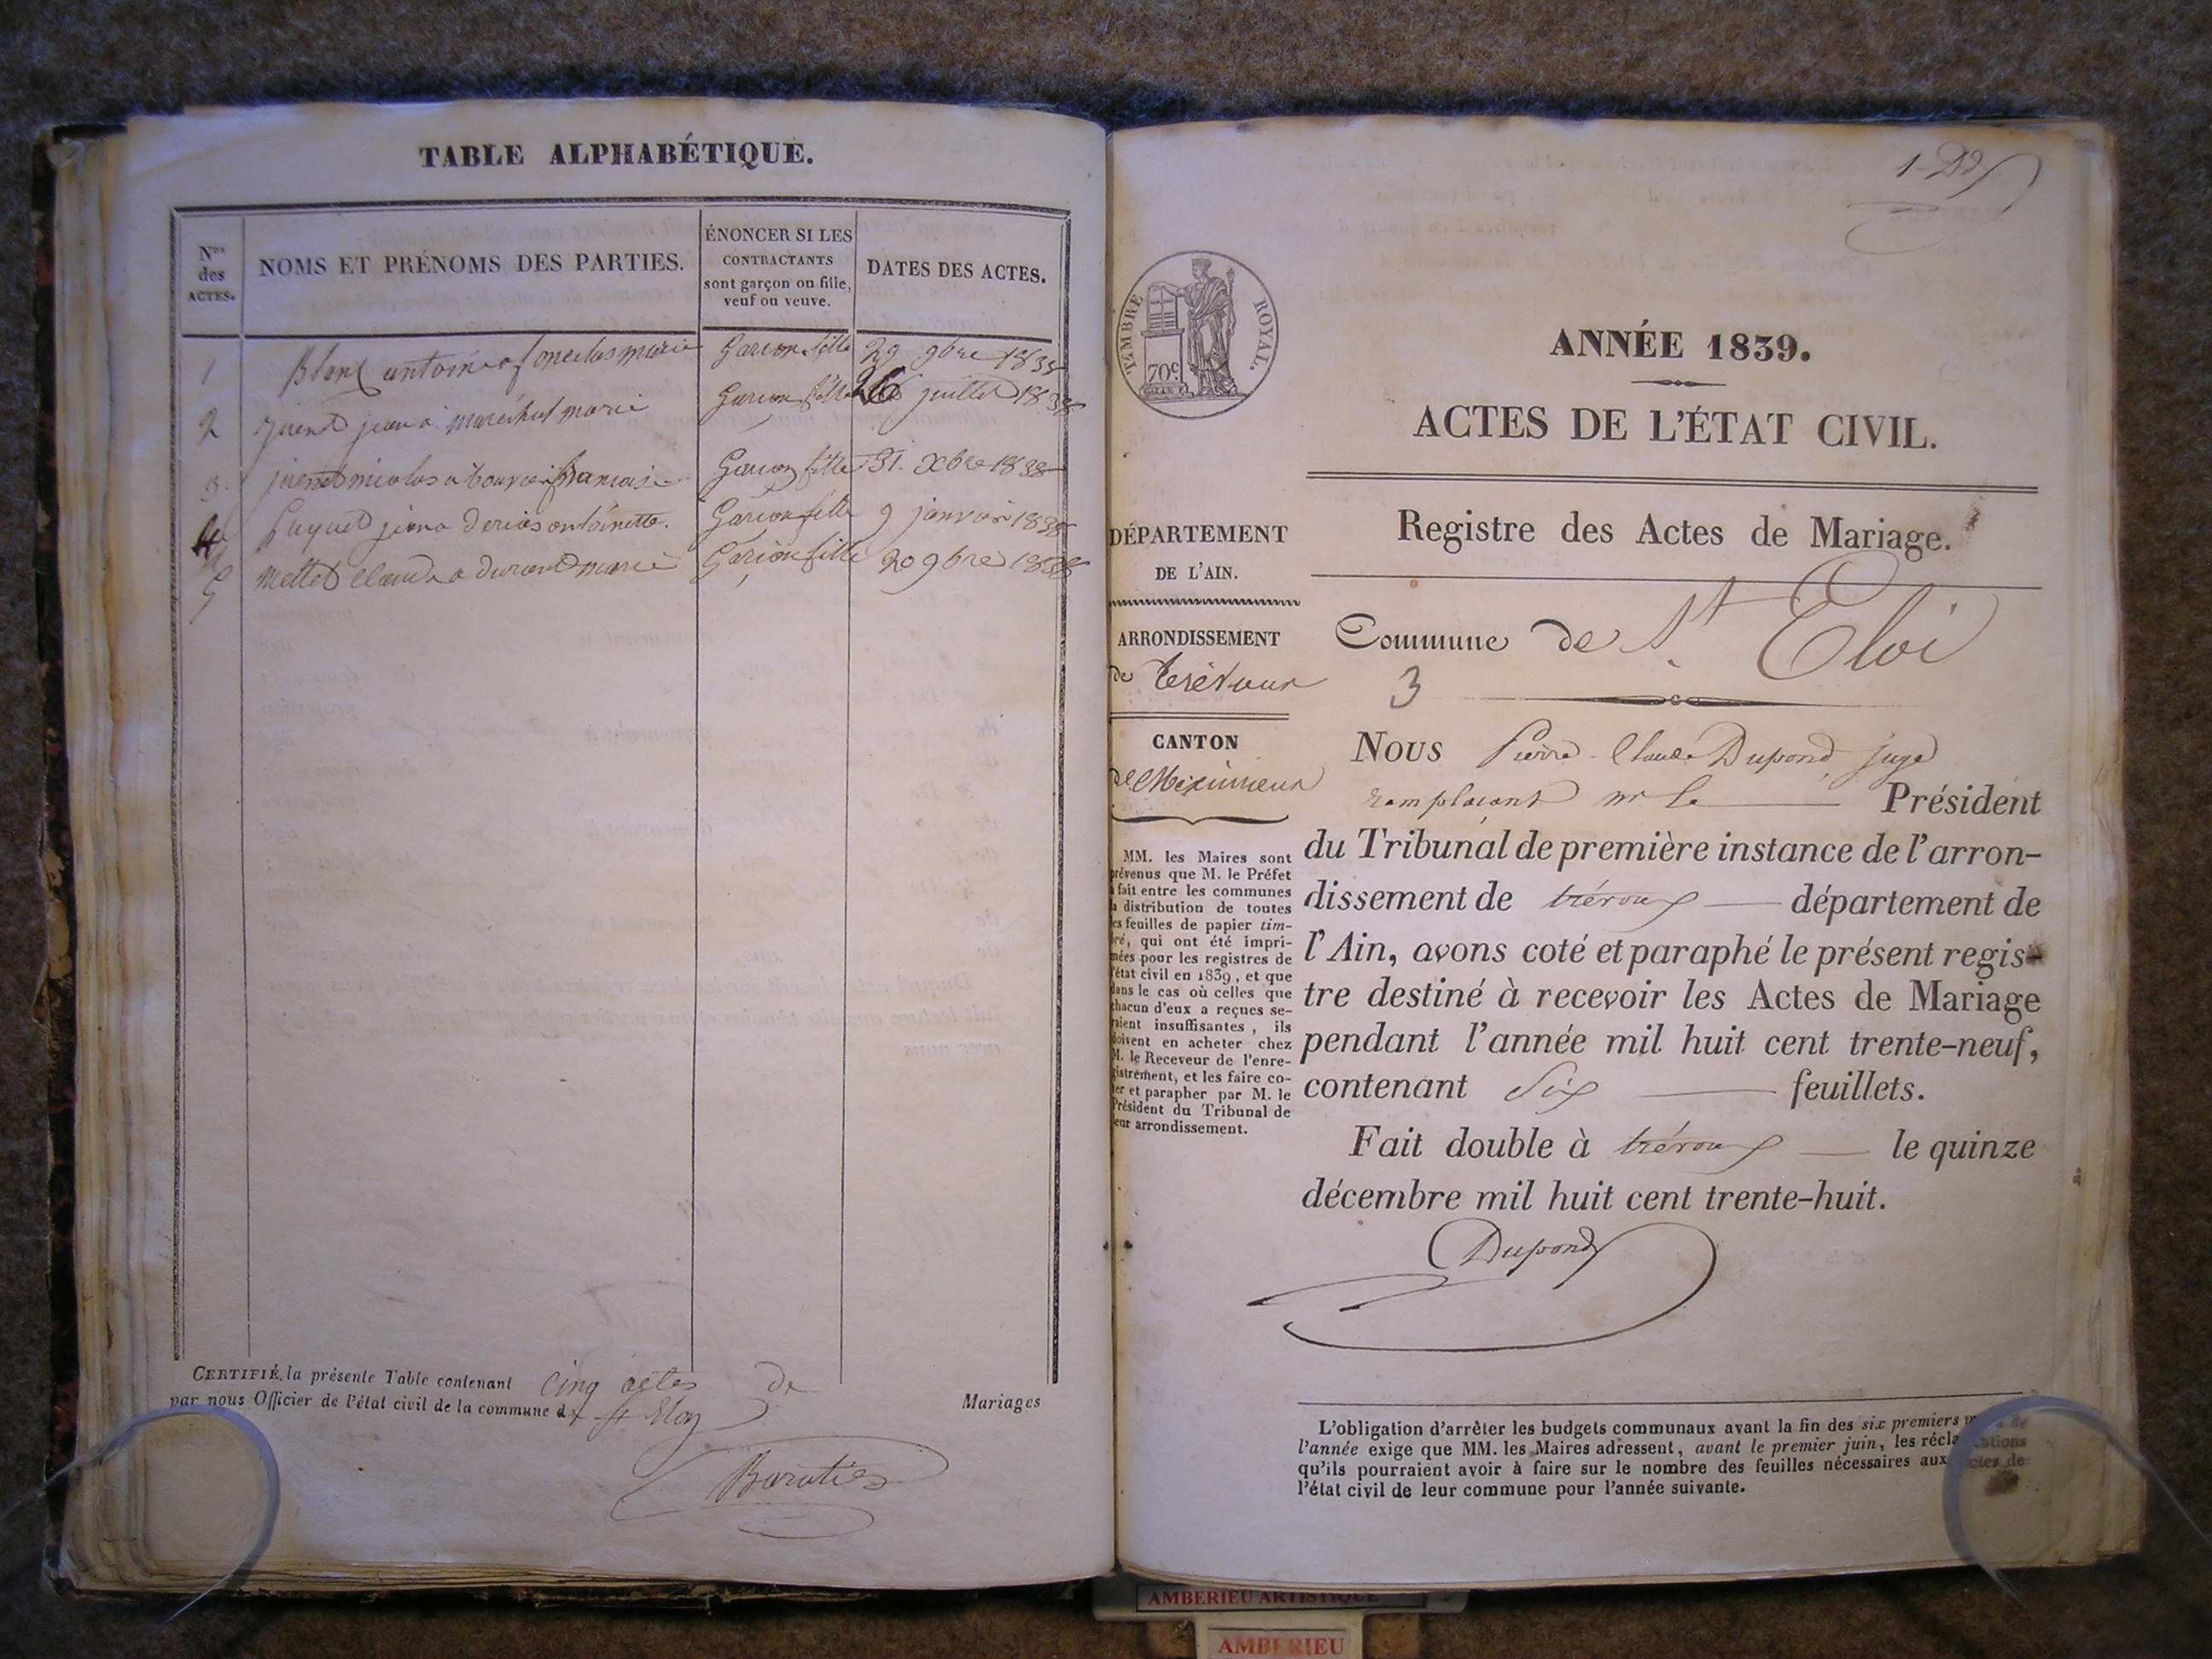 TABLE ALPHABÉTIQUE.
Nos des ACTES.
NOMS ET PRÉNOMS DES PARTIES.
ÉNONCER SI LES
CONTRACTANTS
sont garçon ou fille,
veuf ou veuve.
DATES DES ACTES.
1 Blanc antoine a marie Garcon fille 29 9bre 1838
2 juenet jean a maréchal marie Garcon fille 26 juillet 1838
3 juenet nicolas a francoise Garcon fille 31 Xbre 1838
4 a antoinette. Garcon fille 9 janvier 1838
5 Mettet Claude a durand marie Garcon fille 20 9bre 1838
CERTIFIÉ, la présente Table contenant cinq actes de Mariages
par nous Officier de l'état civil de la commune de st Eloy
1
TIMBRE ROYAL.
70c
ANNÉE 1839.
ACTES DE L'ÉTAT CIVIL.
Registre des Actes de Mariage.
DÉPARTEMENT
DE L'AIN.
ARRONDISSEMENT
de Trévoux
CANTON
de Meximieux
MM. les Maires sont
prévenus que M. le Préfet
a fait entre les communes
la distribution de toutes
les feuilles de papier tim-
bré, qui ont été impri-
mées pour les registres de
l'état civil en 1839, et que
dans le cas où celles que
chacun d'eux a reçues se-
raient insuffisantes, ils
doivent en acheter chez
M. le Receveur de l'enre-
gistrement, et les faire co-
ter et parapher par M. le
Président du Tribunal de
leur arrondissement.
Commune de St Eloi
3
Nous Pierre-Claude Dupond, juge
remplaçant mr le Président
du Tribunal de première instance de l'arron-
dissement de trévoux département de
l'Ain, avons coté et paraphé le présent regis-
tre destiné à recevoir les Actes de Mariage
pendant l'année mil huit cent trente-neuf,
contenant Six feuillets.
Fait double à trévoux le quinze
décembre mil huit cent trente-huit.
Dupond
L'obligation d'arrêter les budgets communaux avant la fin des six premiers mois de
l'année exige que MM. les Maires adressent, avant le premier juin, les réclamations
qu'ils pourraient avoir à faire sur le nombre des feuilles nécessaires aux actes de
l'état civil de leur commune pour l'année suivante.
AMBERIEU ARTISTIQUE
AMBERIEU